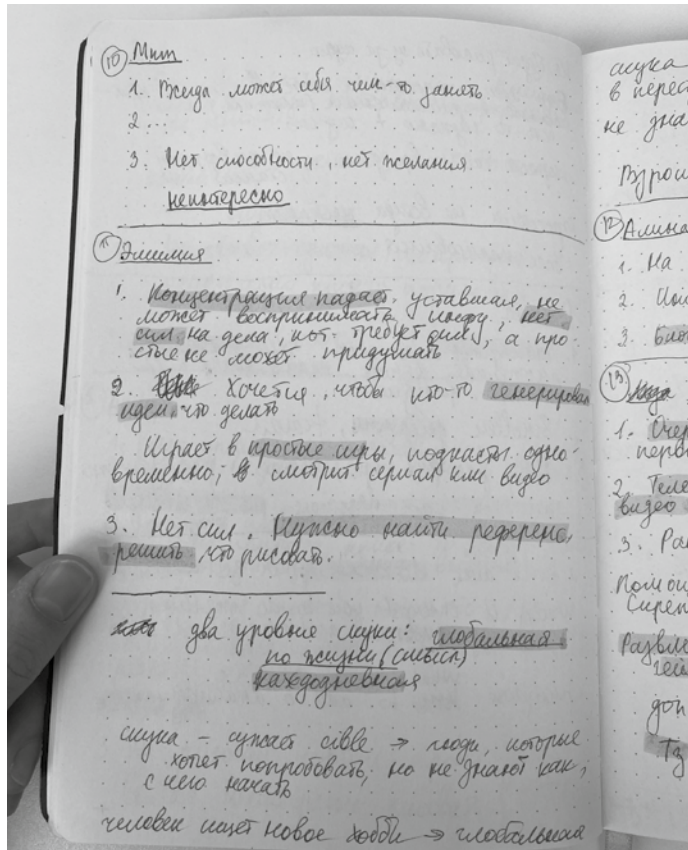 10 Мит
1. Всегда может себя чем-то занять
2...
3. Нет способности, нет желания
неинтересно
11 Эмимия
1. Концентрация падает, уставшая, не
может воспринимать инфу, нет
сил на дела, кот. требует сил, а про
стые не может придумать
2. Хочется, чтобы кто-то генерировал
идеи, что делать
Играет в простые игры, подкасты одно-
временно; смотрит сериал или видео
3. Нет сил. Нужно найти референс,
решить, что рисовать.
два уровня скуки: глобальная
по жизни (смысл)
каждодневная
скука – сужает → люди, которые
хотят попробовать, но не знают как,
с чего начать
человек ищет новое хобби → глобальная
скука
в перес
не зна
Взрос
12 Алина
1. На
2.
3.
13
1. Очер
перв
2. Теле
видео
3. Ра
Развл
доп